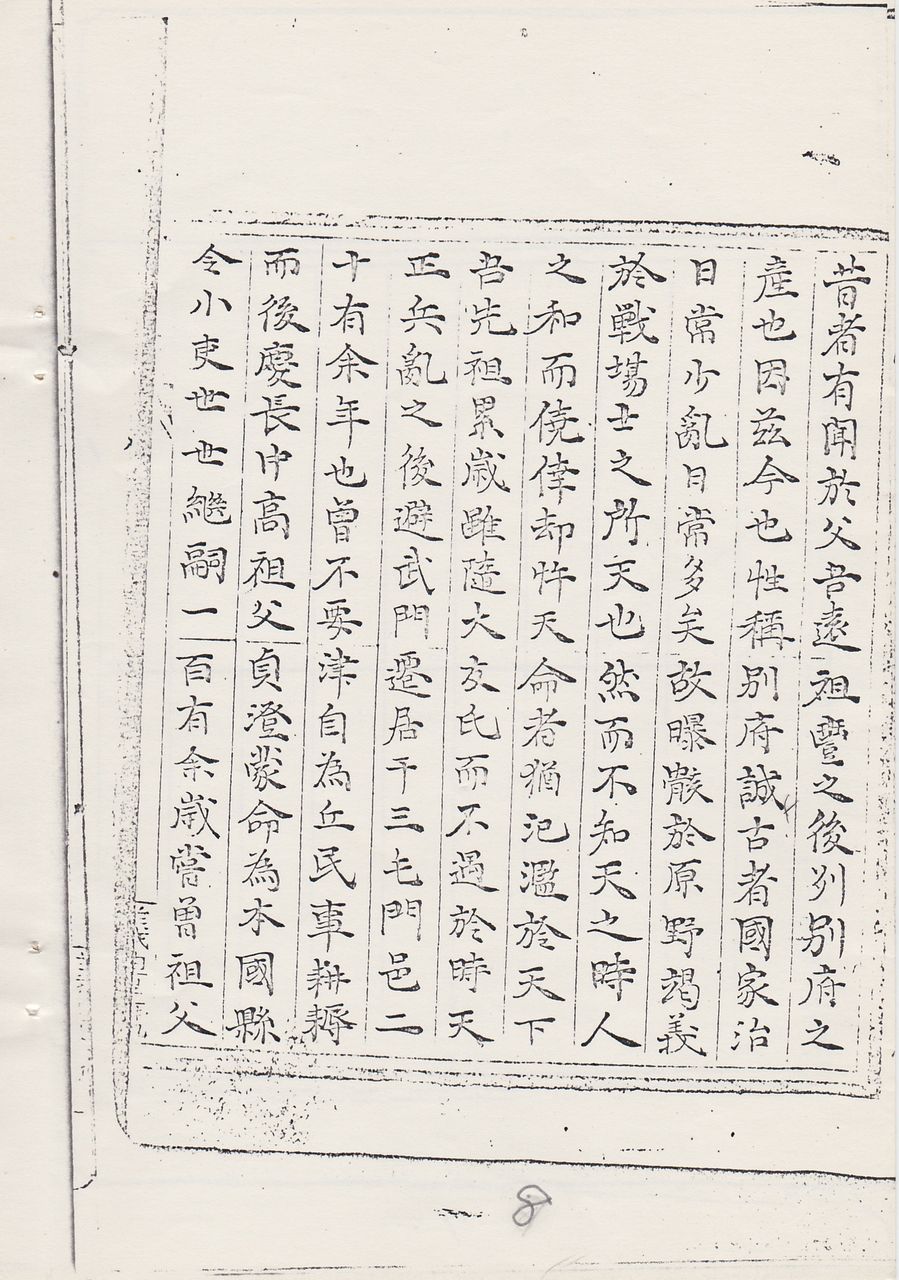 昔者有聞於父吾遠祖豐之後列別府之
産也因茲今也性稱別府誠古者國家治
日常少亂日常多矣故曝骸於原野竭義
於戰場士之所天也然而不知天之時人
之和而僥倖却忤天命者猶氾濫於天下
吾先祖累歲雖隨大友氏而不遇於時天
正兵亂之後避武門遷居于三毛門邑二
十有余年也曽不要津自為丘民事耕耨
而後慶長中高祖父貞澄蒙命為本國縣
令小吏世世継嗣一百有余歲嘗曽祖父
8